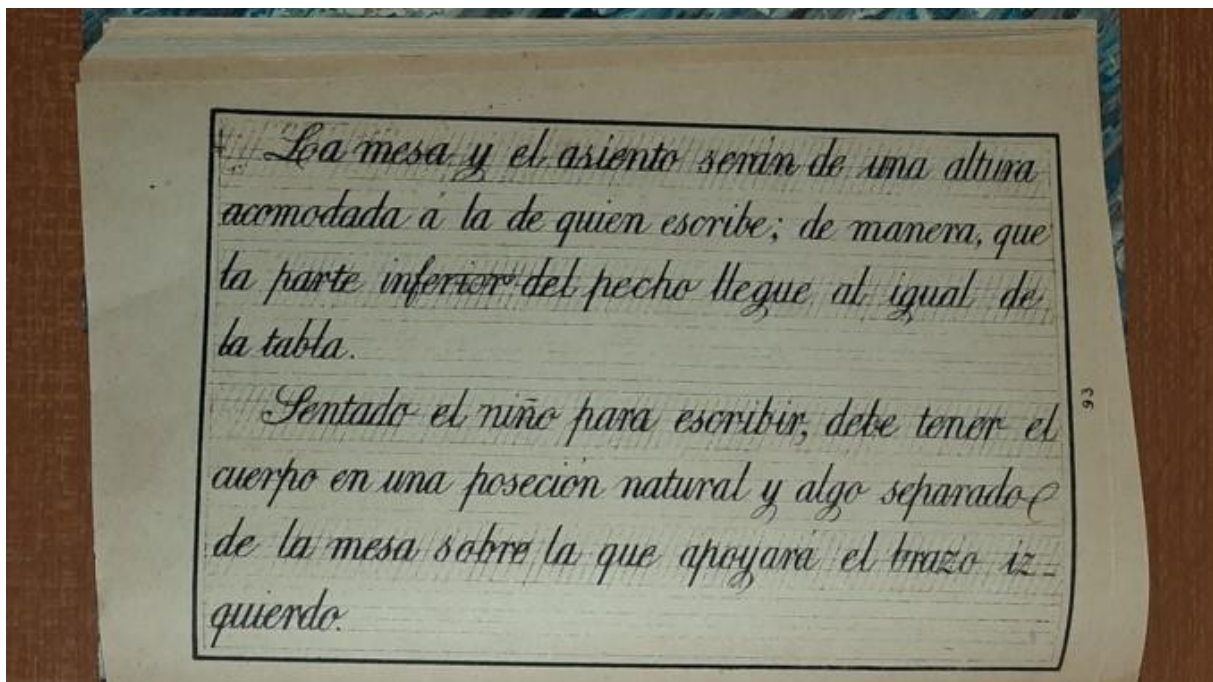 La mesa y el asiento serán de una altura
acomodada á la de quien escribe; de manera, que
la parte inferior del pecho llegue al igual de
la tabla.
Sentado el niño para escribir, debe tener el
cuerpo en una poseción natural y algo separado
de la mesa sobre la que apoyará el brazo iz-
quierdo.
93